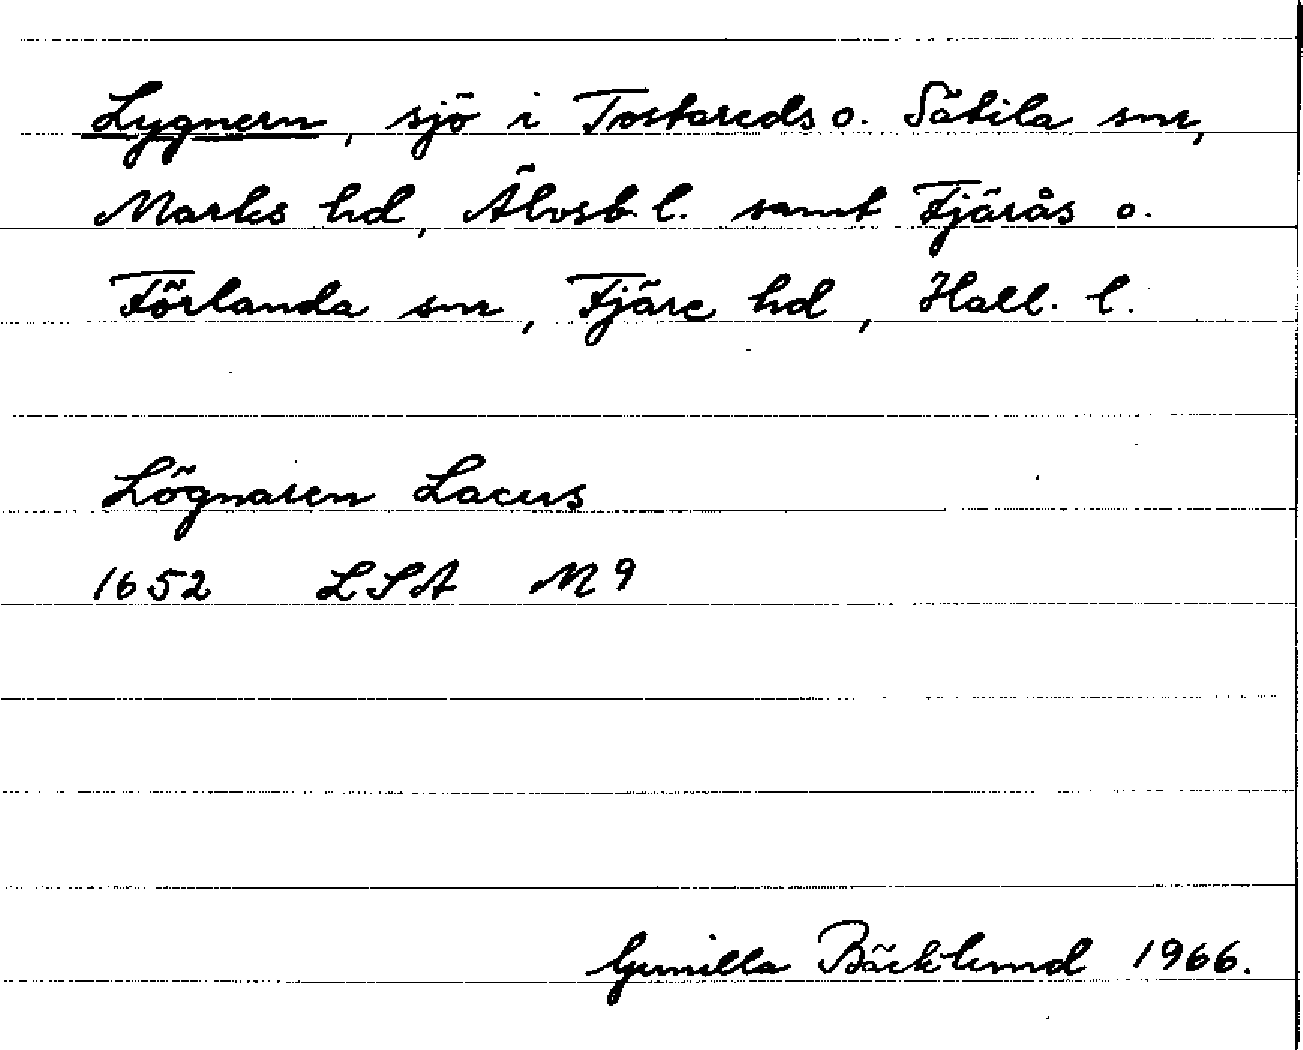 Lygnern, sjö i Tostareds o. Sätila snr,
Marks hd, Älvsb. l. samt Fjärås o.
Förlanda snr, Fjäre hd, Hall. l.
Lögnaren Lacus
1652 LSA M 9
Gunilla Bäcklund 1966.